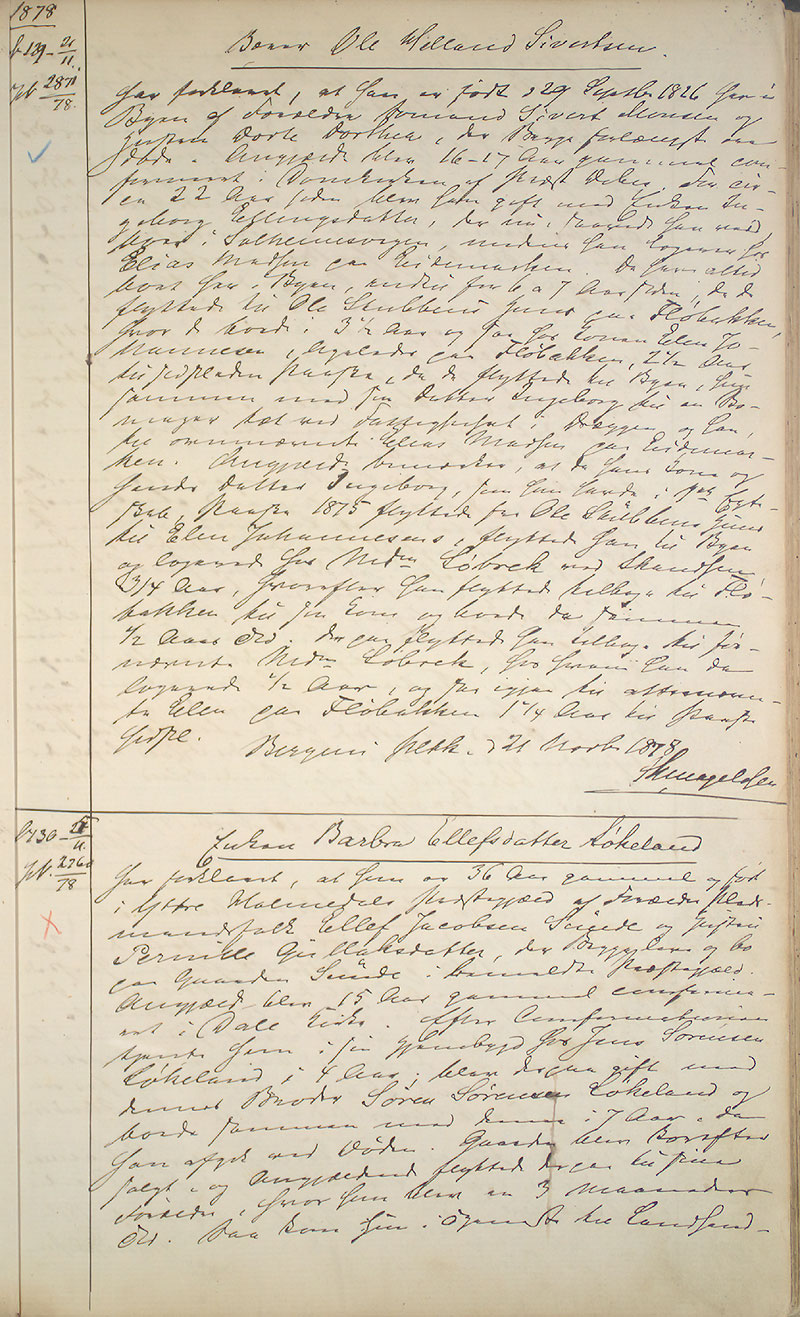 1878
b 139 - 21/11.
Jf. 2871/78.
Bærer Ole Willand Sivertsen.
har forklaret, at han er født d 29 Septbr 1826 her i
Byen af Forældre Formand Sivert Monsen og
Hustru Dorte Dorthea, der Begge forlængst ere
døde. Angjældte blev 16-17 Aar gammel con-
firmeret i Domkirken af Præst . For cir-
ca 22 Aar siden blev han gift med Enken In-
geborg Ellingsdatter, der nu
boer i Solheimsvigen, medens han logerer hos
Elias Madsen paa Eidemarken. De have altid
boet her i Byen, indtil for 6 a 7 Aar siden, da de
flyttede til Ole Skubbens Huus paa Fløbakken,
hvor de boede i 3 1/2 Aar og saa hos Konen Elen Jo-
hannesen, ligeledes paa Fløbakken, 2 1/2 Aar
til sidstleden Paaske, da de flyttede til Byen, hun
sammen med sin Datter Ingeborg til en Bo-
ninger tæt ved Fattighuset i Dræggen og han,
til ovennævnte Elias Madsen paa Eidemar-
ken. Angjældte bemærker, at da hans Kone og
hendes Datter Ingeborg, som hun havde i Egte-
skab, Paaske 1875 flyttede fra Ole Skubbens Huus
til Elen Johannesens, flyttede han til Byen
og logerede hos Madm Løbrek ved Skandsen
3/4 Aar, hvorefter han flyttede tilbage til Flø-
bakken til sin Kone og boede da sammen
1/2 Aars Tid. Derpaa flyttede han tilbage til før-
nævnte Madm Løbrek, hos hvem han da
logerede 1/2 Aar, og saa igjen til oftnævn-
te Elen paa Fløbakken 1 1/4 Aar til Paaske
sidstl.
Bergens Politik. d 21 Novbr 1878
b 730 - /11.
Jf. 2260/78
Enken Barbra Ellefsdatter Løkeland
har forklaret, at hun er 36 Aar gammel og født
i Ytre Holmedals Præstegjæld af Forældre Plads-
mandsfolk Ellef Jacobsen Sunde og Hustru
Pernille Gullaksdatter, der Begge leve og bo
paa Gaarden Sunde i bemeldte Præstegjæld.
Angjæld. blev 15 Aar gammel confirme-
ret i Dale Kirke. Efter Confirmationen
tjente hun i sin Hjembygd hos Jens Sørensen
Løkeland i 4 Aar, blev derpaa gift med
dennes Broder Søren Sørensen Løkeland og
boede sammen med denne i 7 Aar, da
han afgik ved Døden. Gaarden blev derefter
solgt, og Angjældende flyttede derpaa til sine
Forældre, hvor hun blev en 3 Maaneders
Tid. Saa kom hun i Tjeneste hos Landhand-